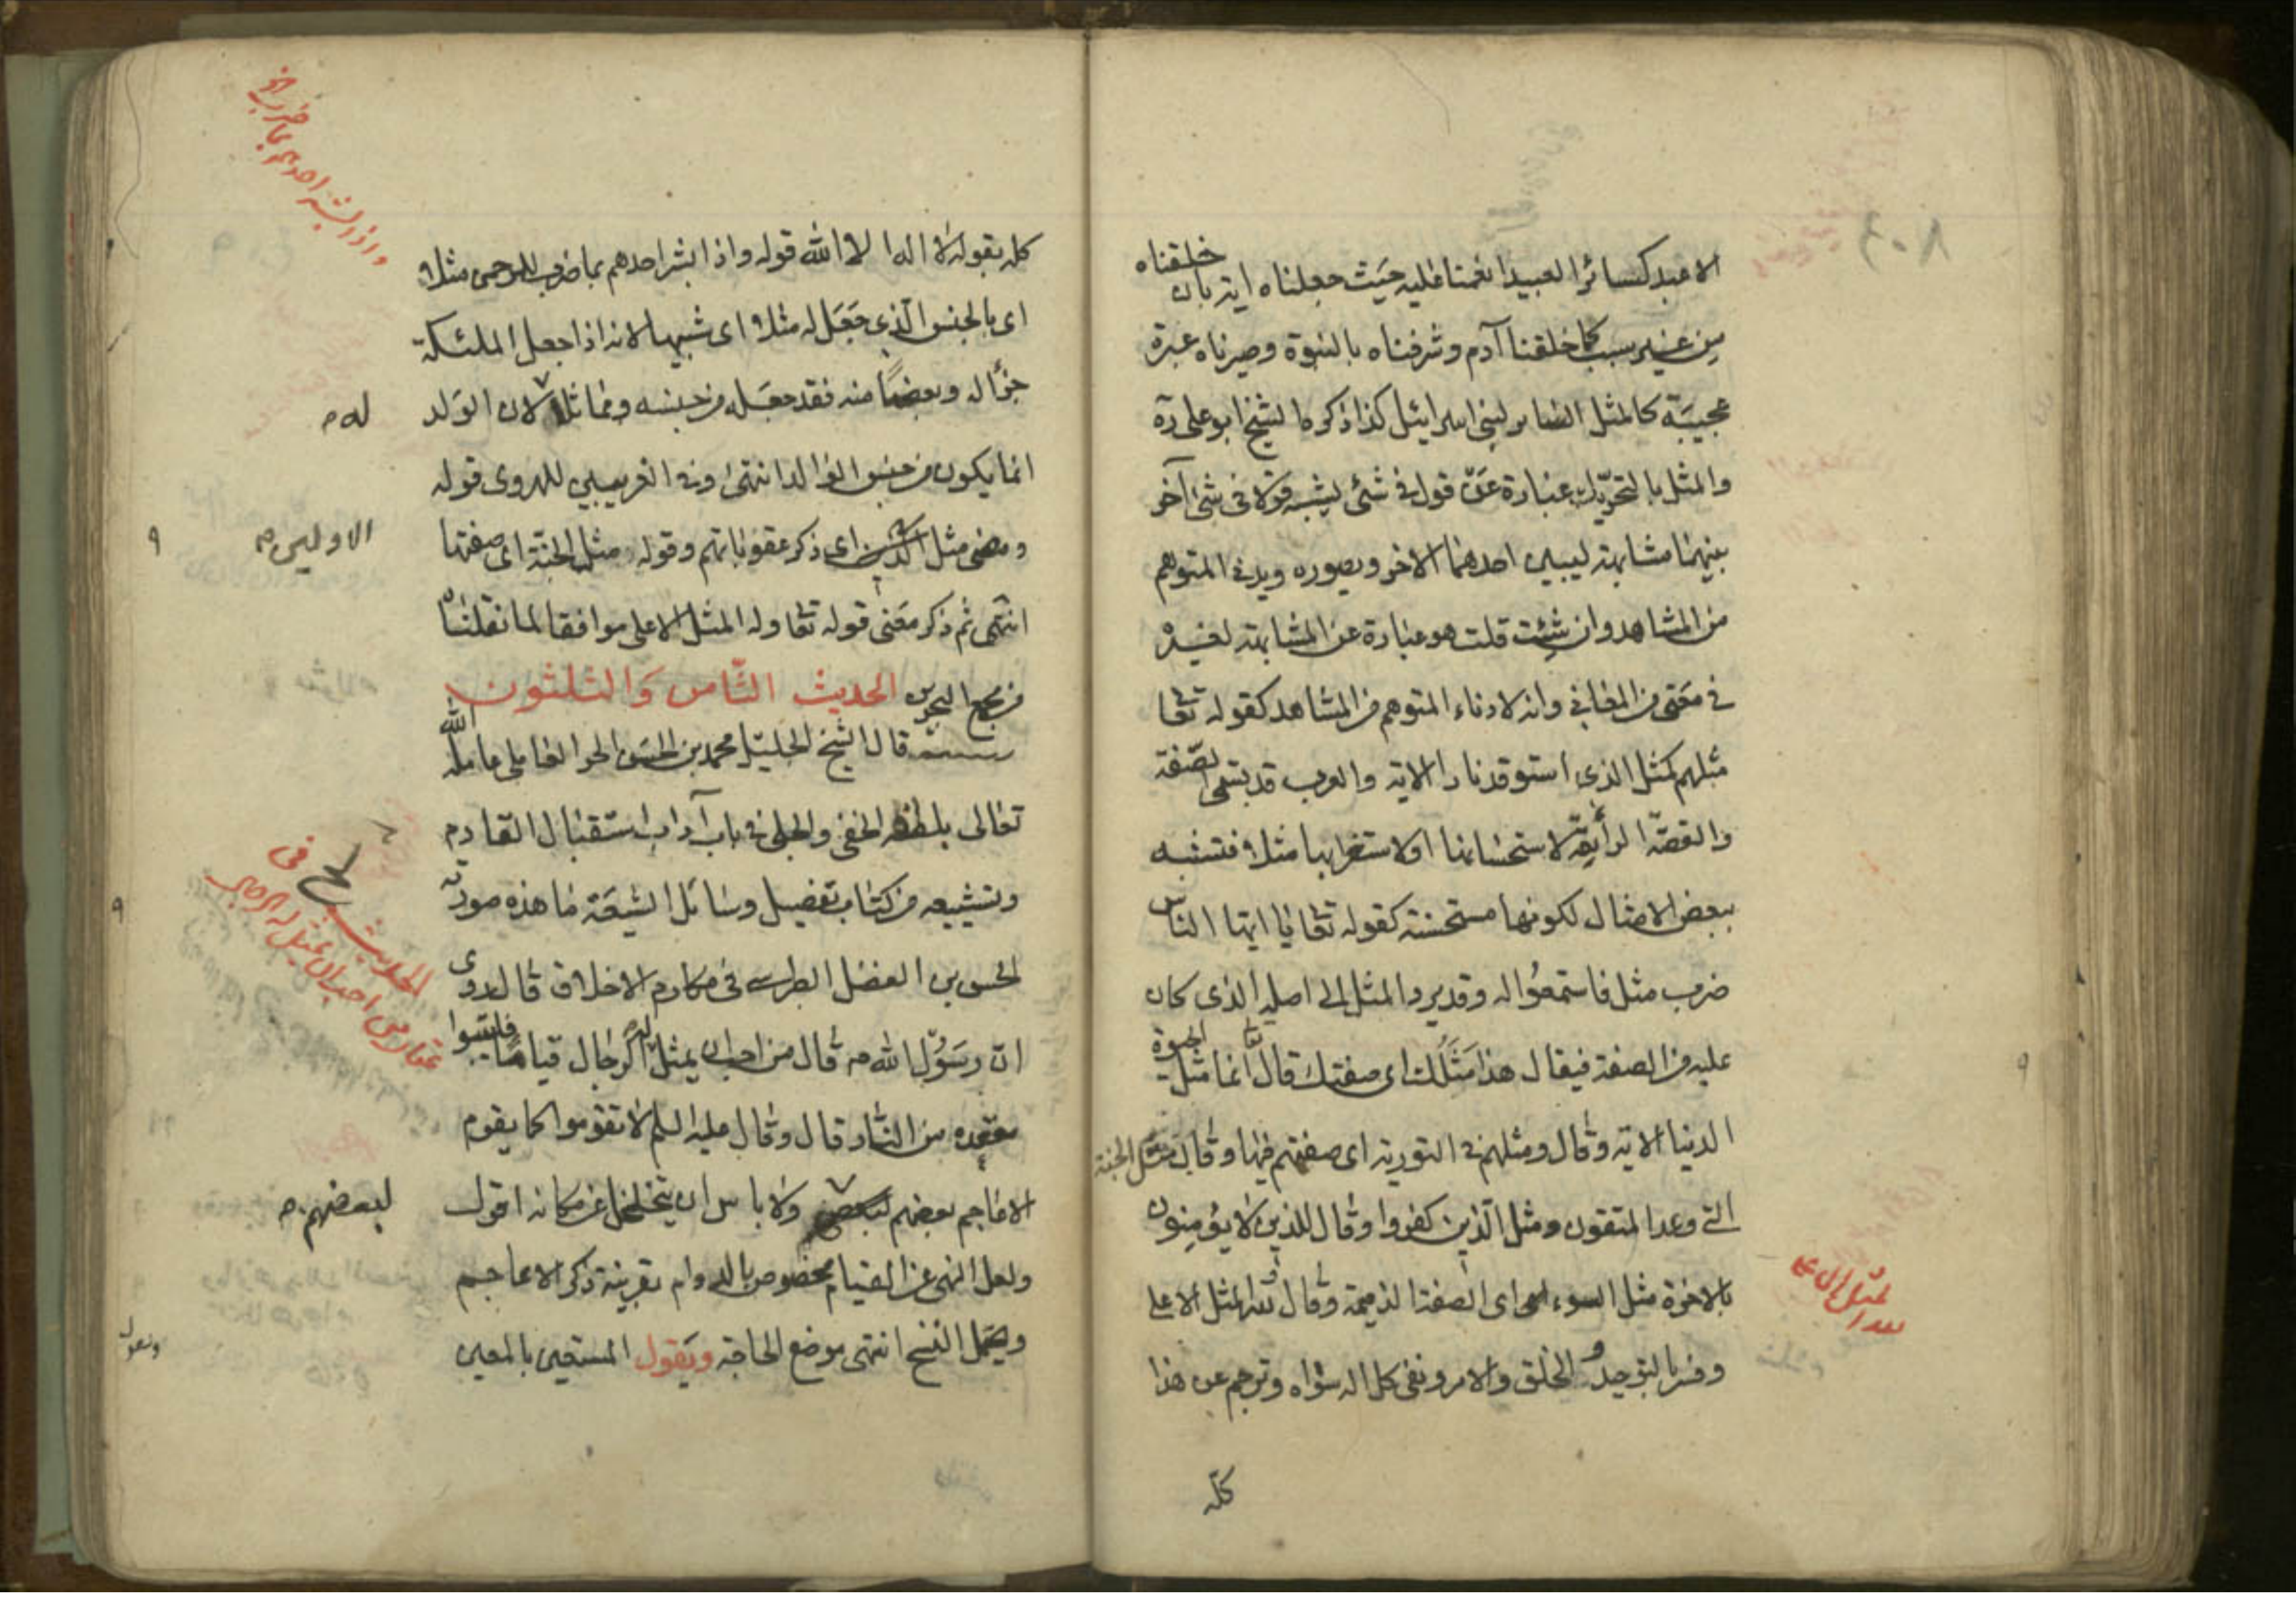 الا عبد كسائر العبيد انعمنا عليه حيث جعلناه اية بان خلقناه
من غير سبب كما خلقنا آدم وشرفناه بالنبوة وصيرناه عبرة
عجيبة كالمثل السائر لبنى اسرائيل كذا ذكره الشيخ ابو على ره
والمثل بالتحريك عبارة عن قول فى شئ يشبه قولا فى شئ آخر
بينهما مشابهة ليبين احدهما الاخر ويصوره ويدنى المتوهم
من المشاهد وان شئت قلت هو عبارة عن المشابهة لغيره
فى معنى من المعانى وانه لادناء المتوهم من المشاهد كقوله تعا
مثلهم كمثل الذى استوقد نارا الاية والعرب قد يسمى الصفة
والقصة الرائقة لاستحسانها او لاستغرابها مثلا فتشبه
ببعض الامثال لكونها مستحسنة كقوله تعا يا ايها الناس
ضرب مثل فاستمعوا له وقد يرد المثل الى اصله الذى كان
عليه من الصفة فيقال هذا مثلك اى صفتك قال تعا انما مثل الحيوة
الدنيا الاية وقال ومثلهم فى التورية اى صفتهم فيها وقال مثل الجنة
التى وعد المتقون ومثل الذين كفروا وقال للذين لا يؤمنون
بالاخرة مثل السوء اى الصفة الذميمة وقال ولله المثل الاعلى
وفسر بالتوحيد و الخلق والامر ونفى كل اله سواه وترجم عن هذا
كله
كله بقوله لا اله الا الله قوله واذا بشر احدهم بما ضرب للرحمن مثلا
اى بالجنس الذى جعل له مثلا اى شبيها لانه اذا جعل الملئكة
جزأ له وبعضا منه فقد جعله من جنسه ومماثلا لان الولد
له
انما يكون من جنس الوالد انتهى وفى الغريبين للهروى قوله
ومضى مثل اى ذكر عقوباتهم وقوله مثل الجنة اى صفتها
الاولين
انتهى ثم ذكر معنى قوله تعا وله المثل الاعلى موافقا لما نقلناه
من مجمع البحرين الحديث الثامن والثلثون
قال الشيخ الجليل محمد بن الحسن الحر العاملى عامله الله
تعالى بلطفه الخفى والجلى فى باب آداب استقبال القادم
وتشييعه من كتاب تفصيل وسائل الشيعة ما هذه صورته
الحسن بن الفضل الطبرسى فى مكارم الاخلاق قال روى
ان رسول الله ص قال من احب ان يمثل له الرجال قياما فليتبوا
مقعده من النار قال وقال عليه السلم لا تقوموا كما يقوم
الاعاجم بعضهم ولا باس ان يتخلخل عن مكانه اقول
لبعضهم
ولعل النهى عن القيام مخصوص بالدوام بقرينة ذكر الاعاجم
ويحتمل النسخ انتهى موضع الحاجة ويقول المستعين بالمعين